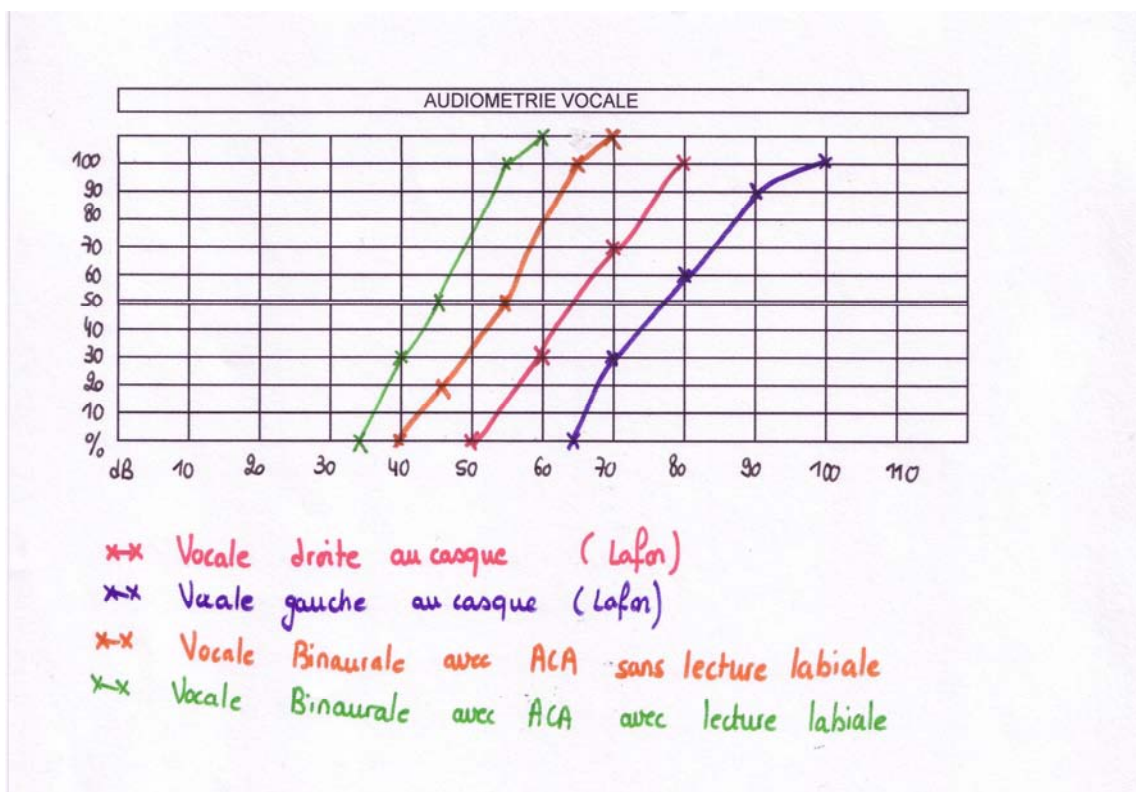 AUDIOMETRIE VOCALE
100
90
80
70
60
50
40
30
20
10
%
dB 10 20 30 40 50 60 70 80 90 100 110
Vocale droite au casque (Lafon)
Vocale gauche au casque (Lafon)
Vocale Binaurale avec ACA sans lecture labiale
Vocale Binaurale avec ACA avec lecture labiale